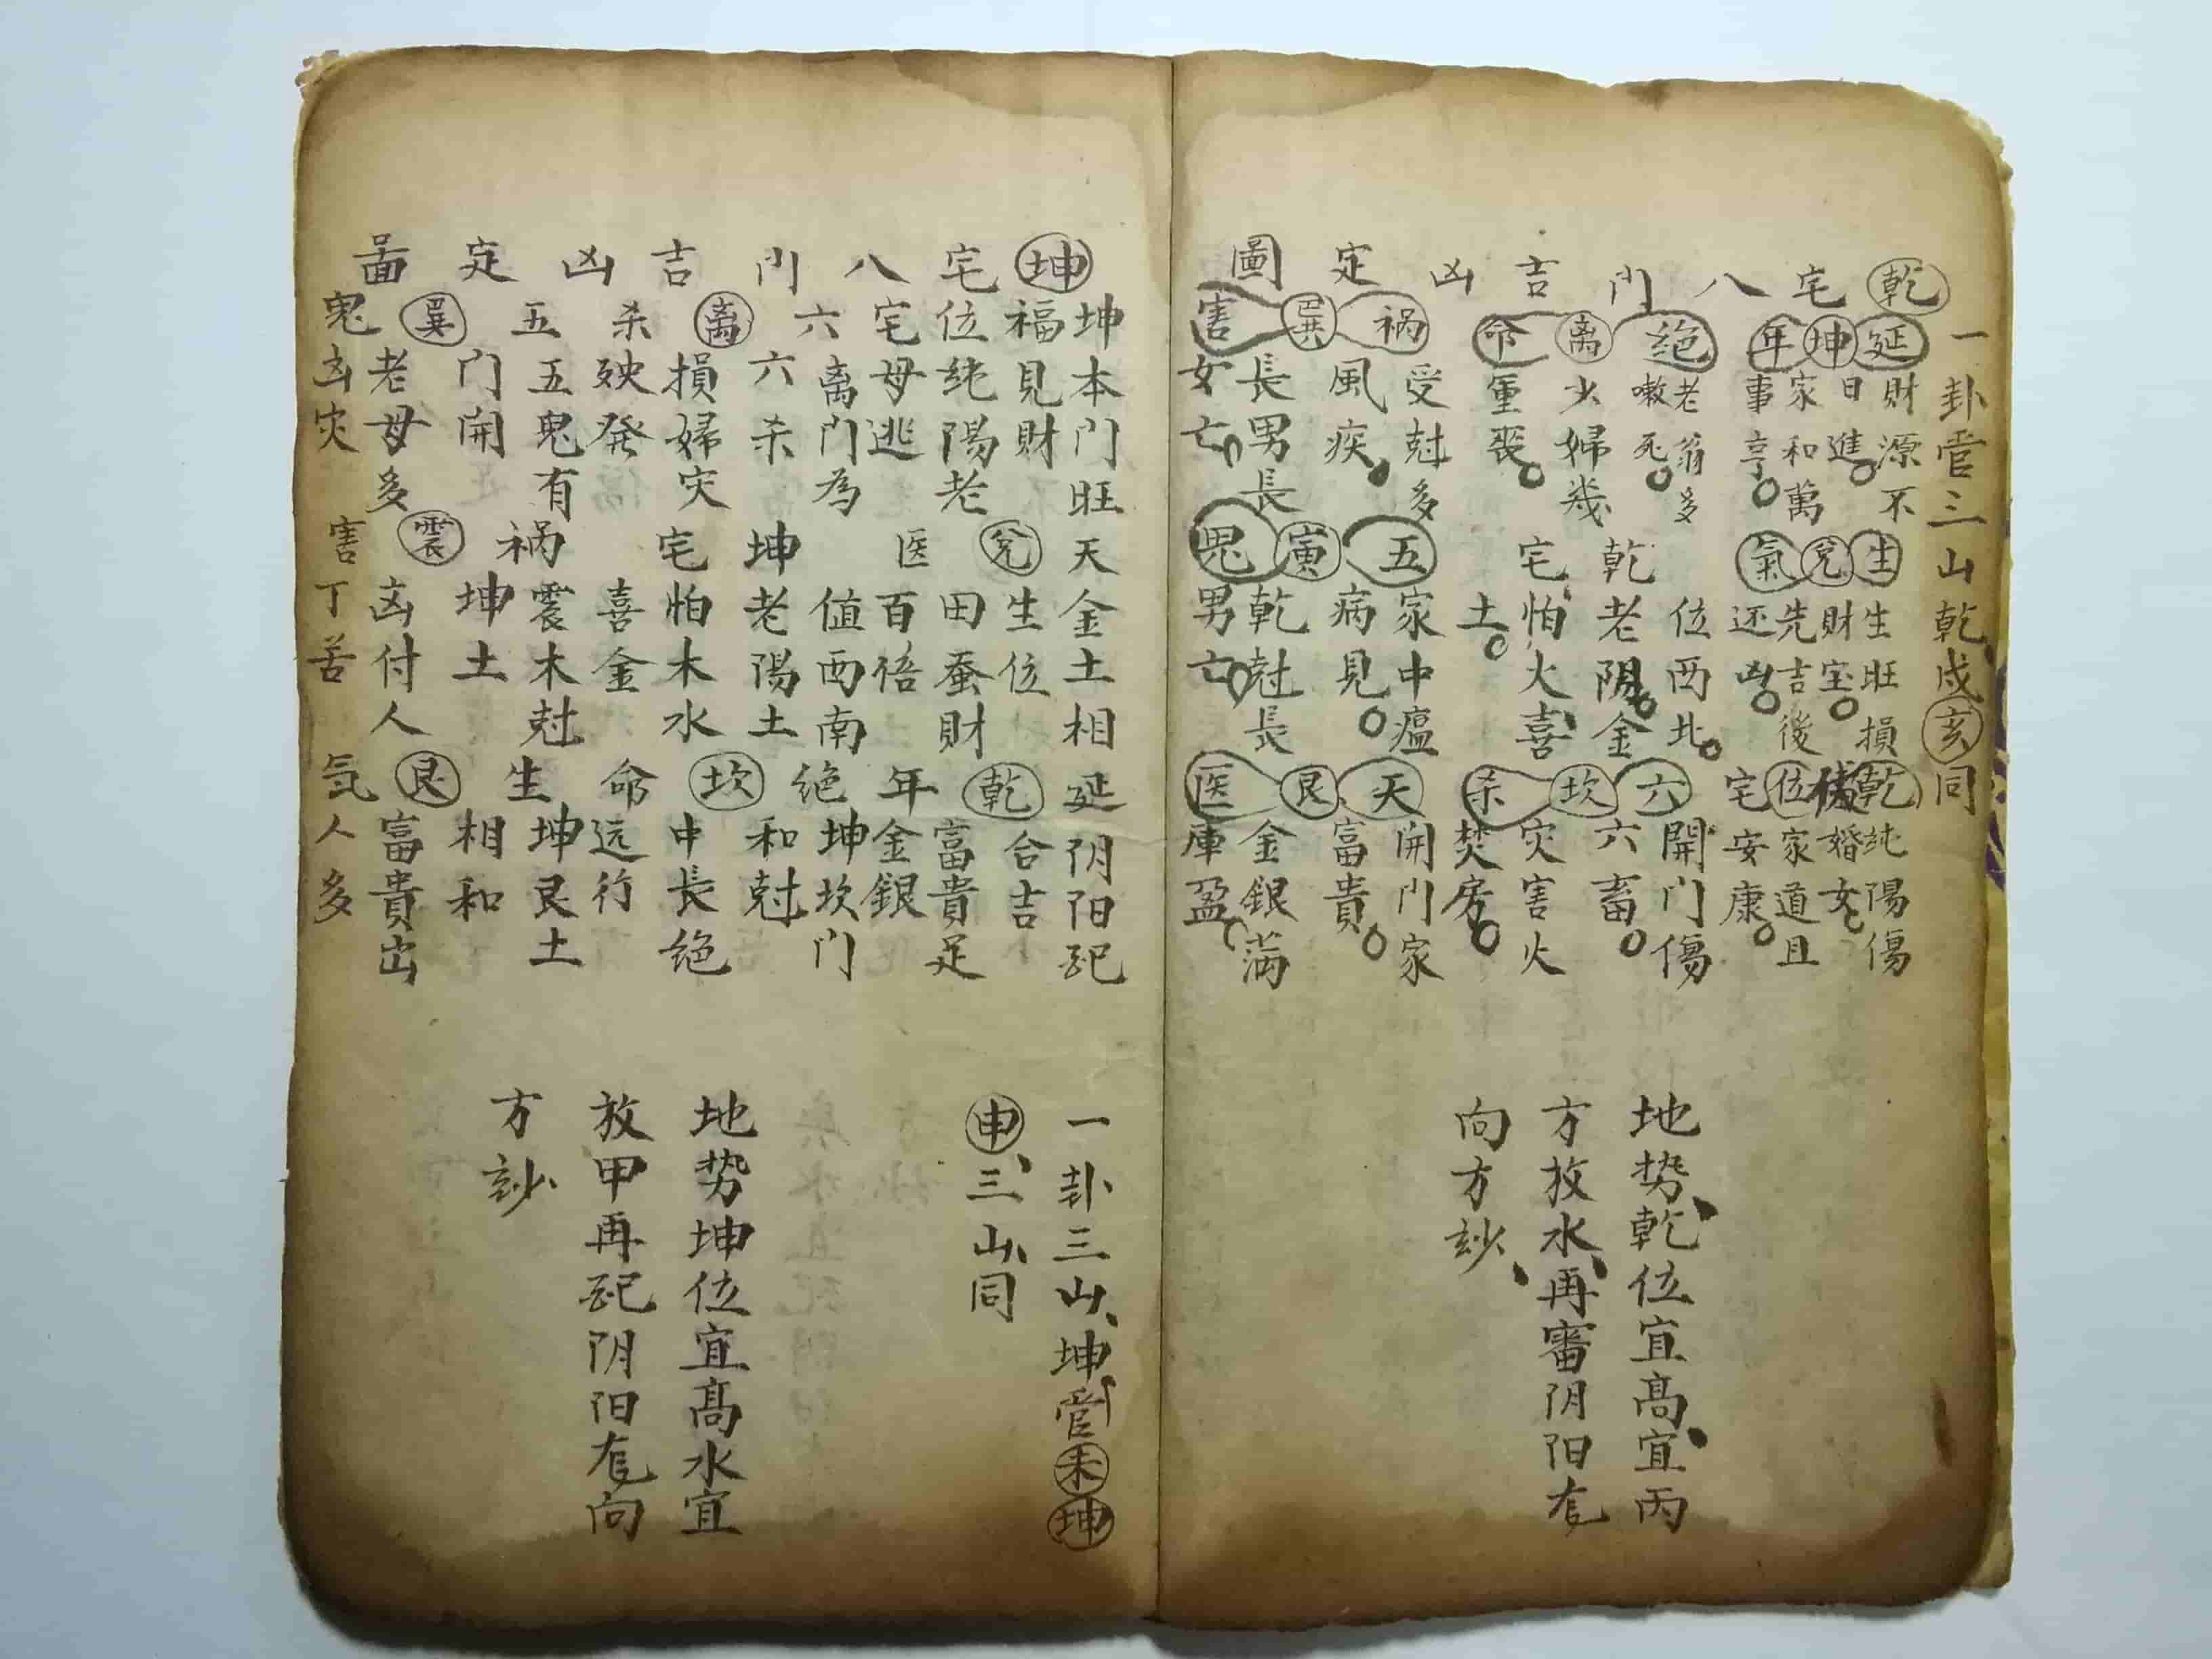 乾宅八门吉凶定圖
一卦管三山乾戌亥同
延坤年
財源不
日進
家和萬
事亨
绝離命
老翁多
嗽死
少婦幾
重喪
祸巽害
受尅多
風疾
長男長
女亡
生兌氣
生旺損
財宝
先吉後
还凶
位西北
乾老阴金
宅怕火喜
土
五寅鬼
家中瘟
病見
乾尅長
男亡
乾位宅
純陽傷
婚女
家道且
安康
六坎杀
開门傷
六畜
灾害火
焚房
天艮医
開门家
富貴
金銀滿
庫盈
地势乾位宜髙宜丙
方放水再審阴阳定
向方妙
坤宅八门吉凶定啚
坤本门旺
福見財
位純陽老
宅母逃
六離杀
離门為
六杀
損婦灾
殃発
五巽鬼
五鬼有
门開
老母多
凶灾
天兌医
金土相
生位
田蚕財
百倍
值西南
坤老陽土
宅怕木水
喜金
祸震害
震木尅
坤土
凶付人
丁苦
延乾年
阴阳配
合吉
富貴足
金銀
绝坎命
坤坎门
和尅
中長绝
远行
生艮気
坤艮土
相和
富貴出
人多
一卦三山坤管未坤
申三山同
地势坤位宜髙水宜
放甲再配阴阳定向
方妙